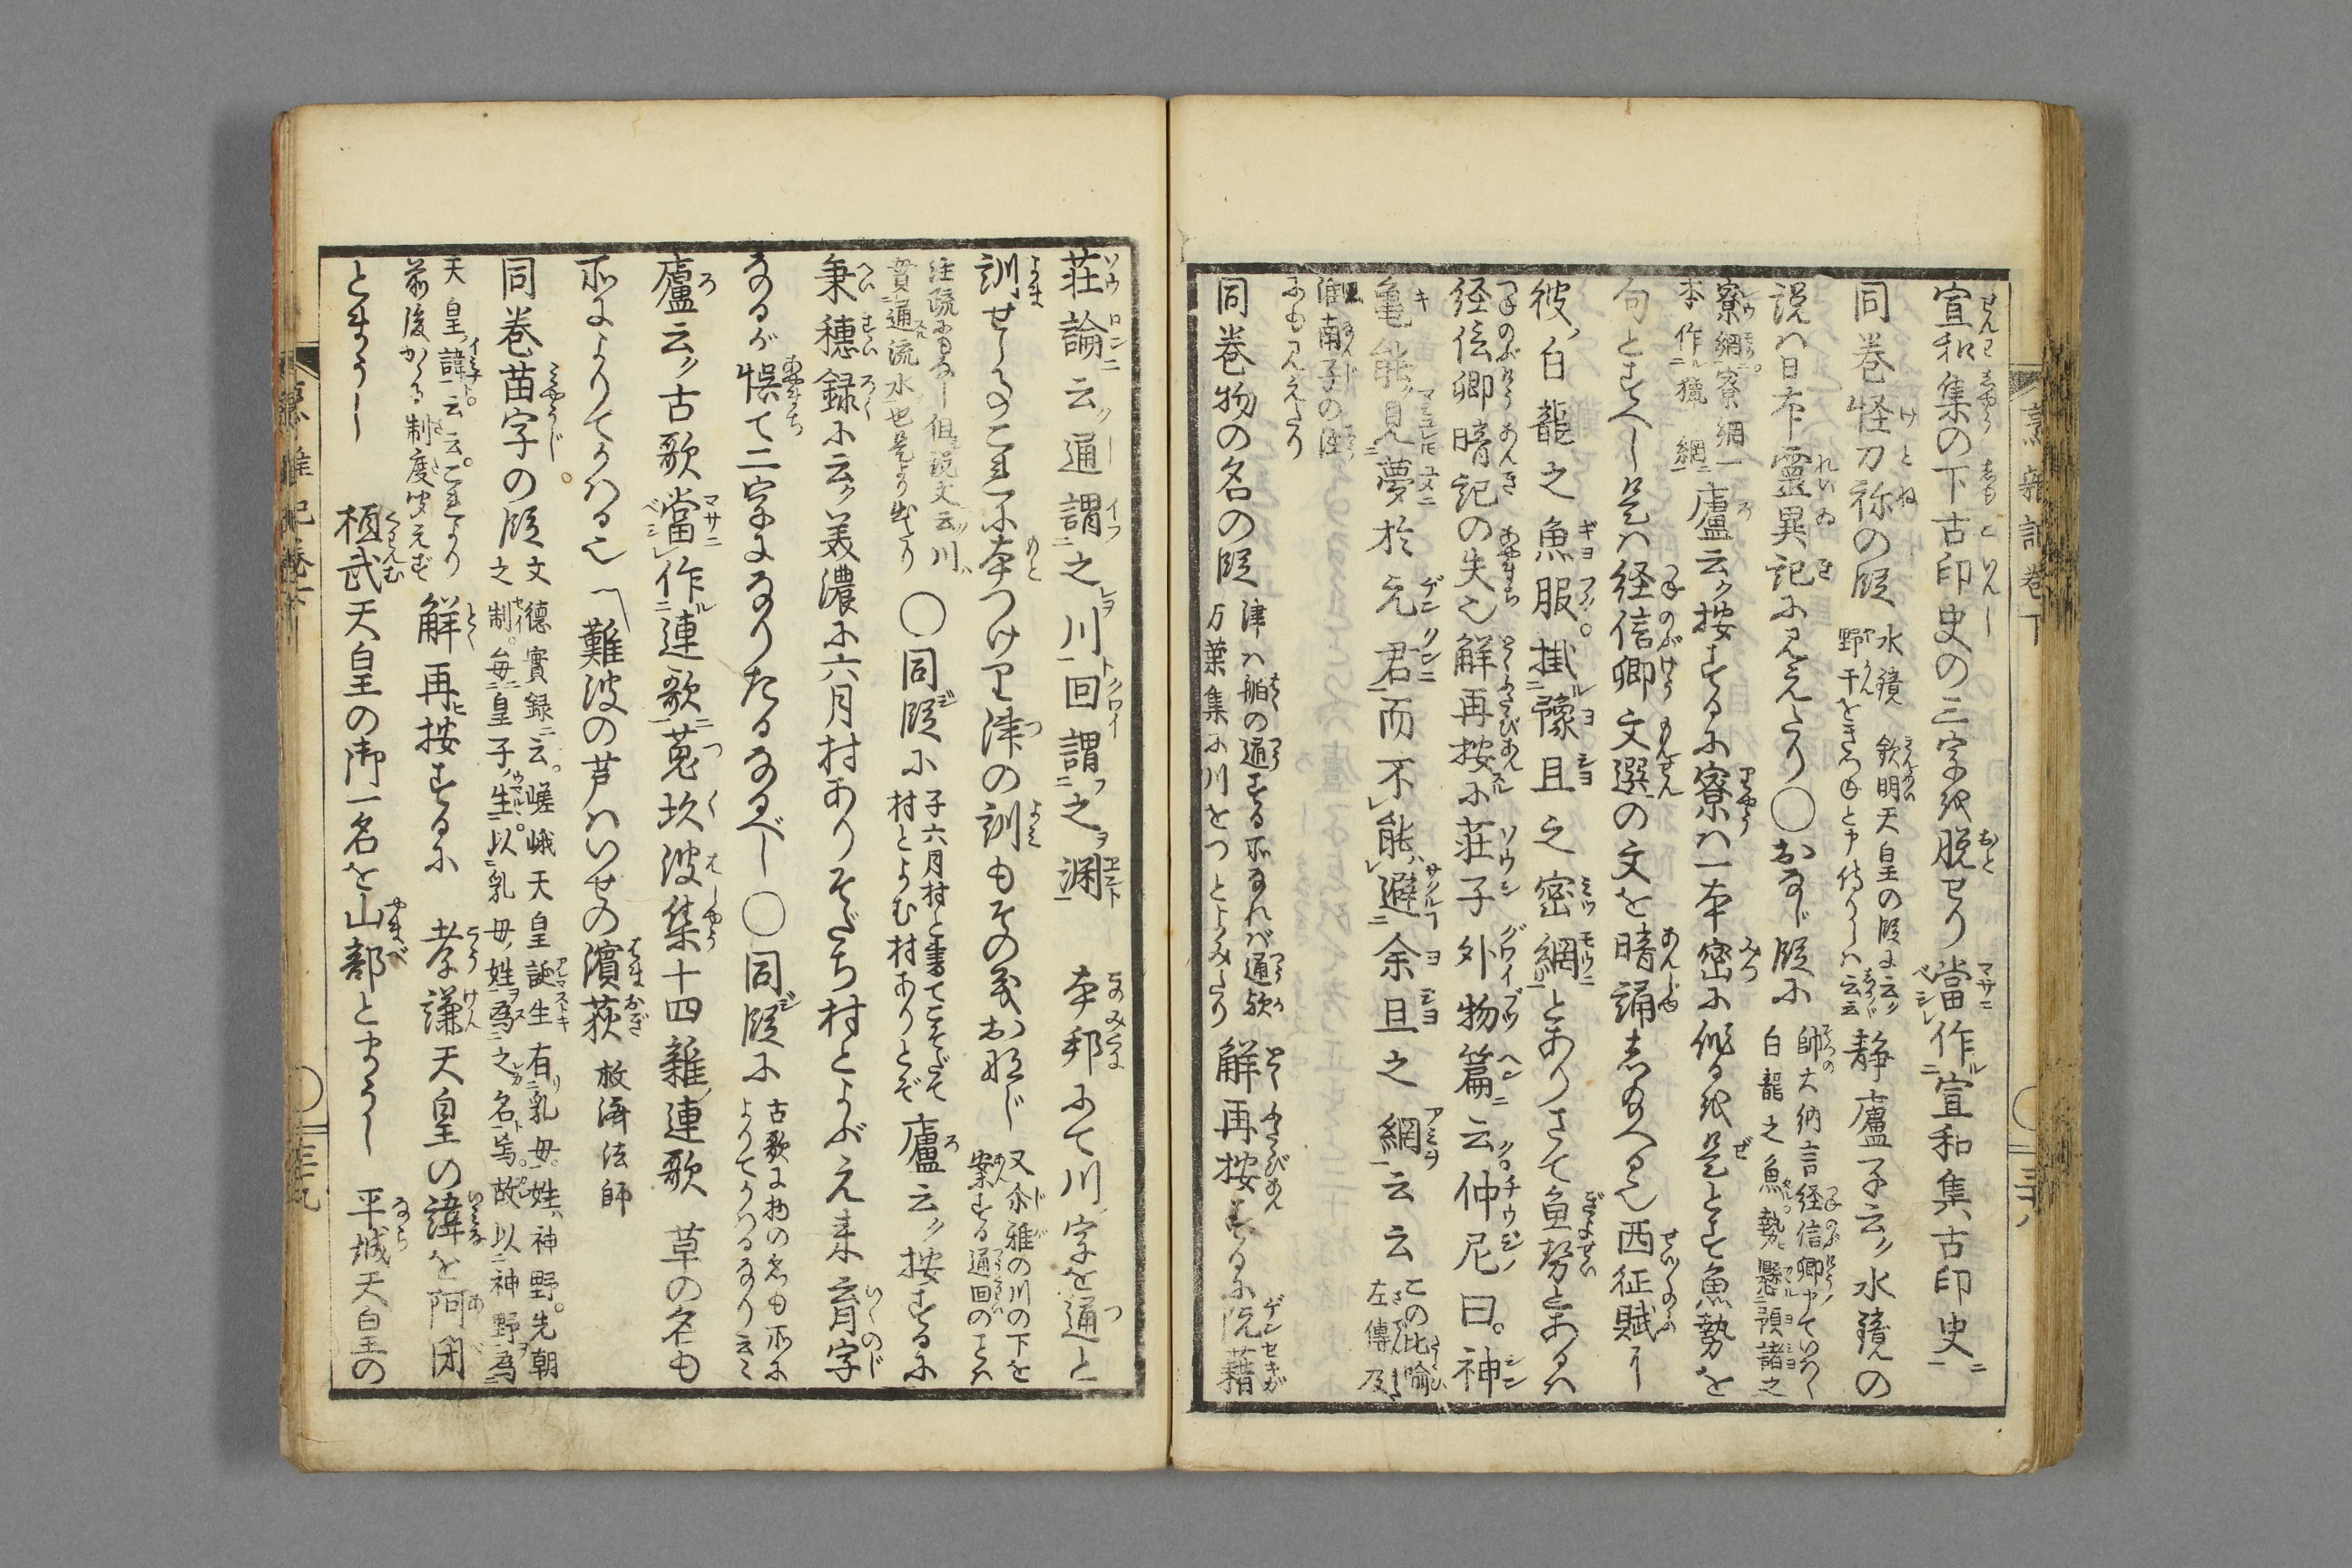 宣和集の下古印史の三字を脱せり當作宣和集古印史
同巻怪刀祢の段
水鏡 欽明天皇の段に云
野干をきつねと申侍りしハ云云
静廬子云水鏡の
説ハ日本靈異記に見えたり〇おなじ段に
帥大納言経信卿申ていはく
白龍之魚勢懸預諸之
寮網寮網一
本作獵網
廬云按ずるに寮ハ一本密に作るを是とす魚勢を
句とすべし是ハ経信卿文選の文を暗誦し給へる也西征賦に
彼白龍之魚服掛豫且之密網とありさて魚勢とあるハ
経信卿暗記の失也解再按に荘子外物篇云仲尼曰神
亀能見夢於元君而不能避余且之網云云
この比喩
左傳及
淮南子の注
にも見えたり
同巻物の名の段
津ハ舶の通ずる所なれバ通歟
万葉集に川をつとよみたり
解再按ずるに阮藉
烹雜記巻下
三十八
荘論云通謂之川回謂之渊 本邦にて川字を通と
訓せしもこれに本つけり津の訓もその義おなじ
又尓雅の川の下を
案ずる通回のことハ
注疏にもなし但説文云川ハ
貫通流水也是より出たり
〇同段に
子六月村と書てこそだて
村とよむ村ありとぞ
廬云按ずるに
秉穂録に云美濃に六月村ありそだち村とよぶえ来育字
なるが悞て二字になりたるなるべし〇同段に
古歌に物の名も所に
よりてかはるなり云々
廬云古歌當作連歌菟玖波集十四雜連歌 草の名も
所によりてかはる也 難波の芦ハいせの濱荻 救済法師
同巻苗字の段
文德實録云嵯峨天皇誕生有乳母姓神野先朝
之制毎皇子生以乳母姓為之名焉故以神野為
天皇諱云云これより
前後かゝる制度聞えず
解再按ずるに 孝謙天皇の諱を阿閇
とまうし 桓武天皇の御一名を山部とまうし 平城天皇の
三十九